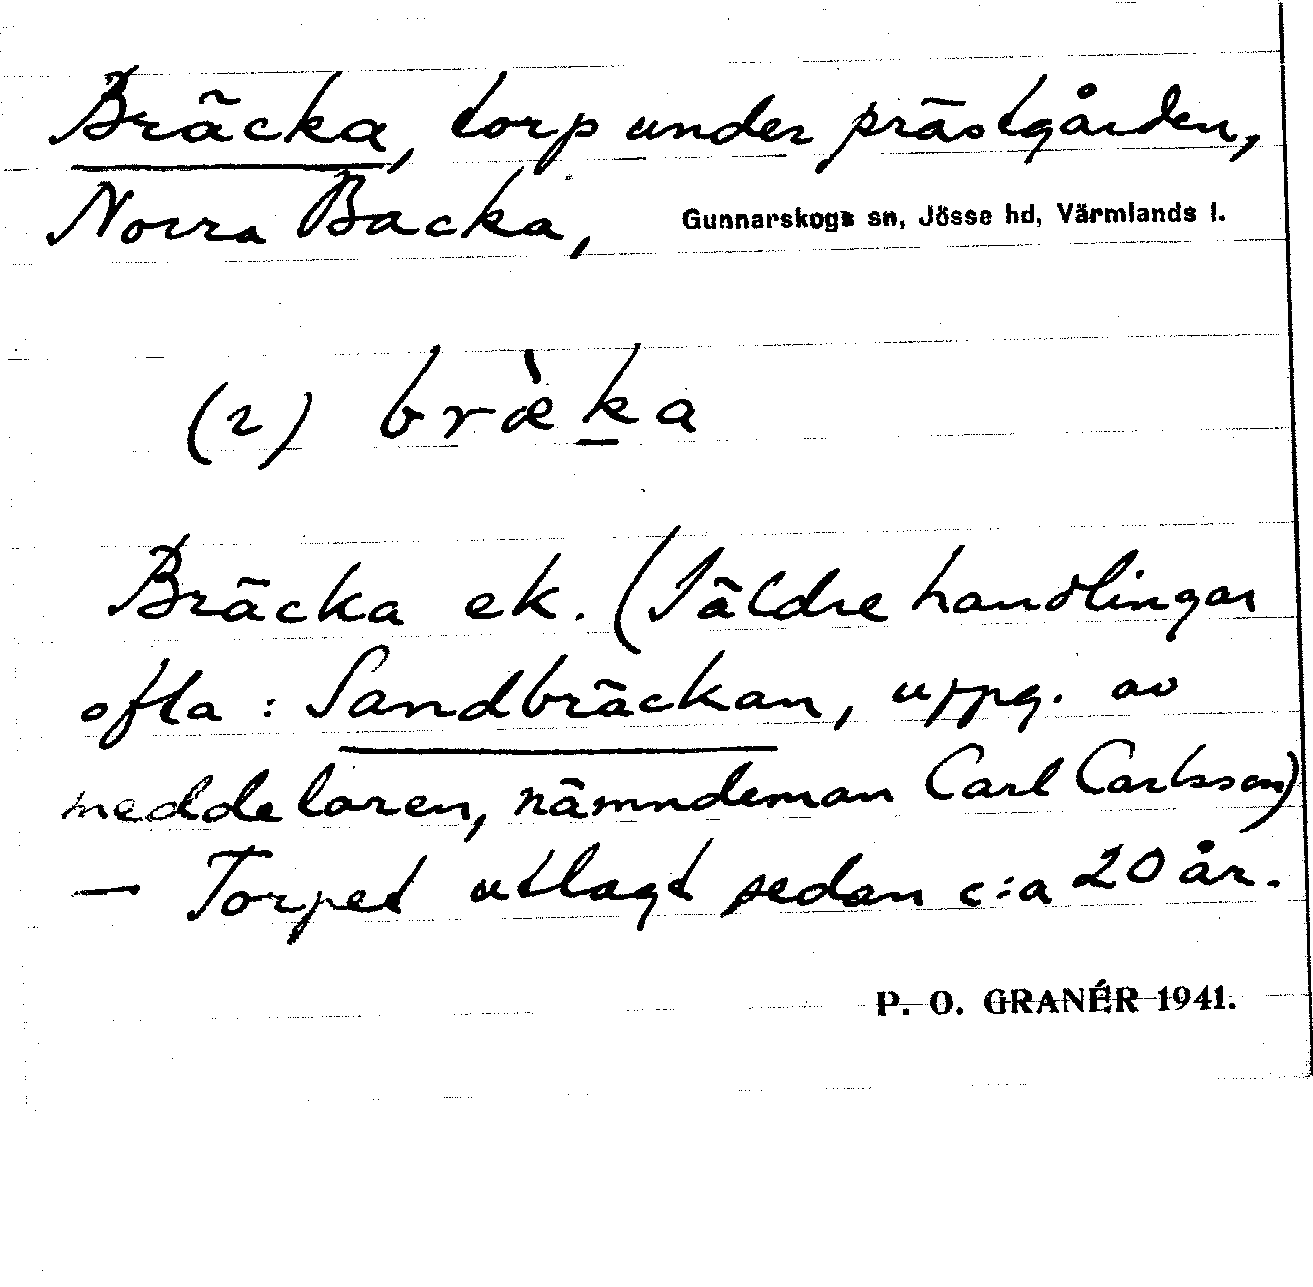 Bräcka, torp under prästgården,
Norra Backa, Gunnarskogs sn, Jösse hd, Värmlands l.
(2) bræ̀ḵa
Bräcka ek. (I äldre handlingar
ofta: Sandbräckan, uppg. av
meddelaren, nämndeman Carl Carlsson)
— Torpet utlagt sedan c:a 20 år.
P. O. GRANÉR 1941.